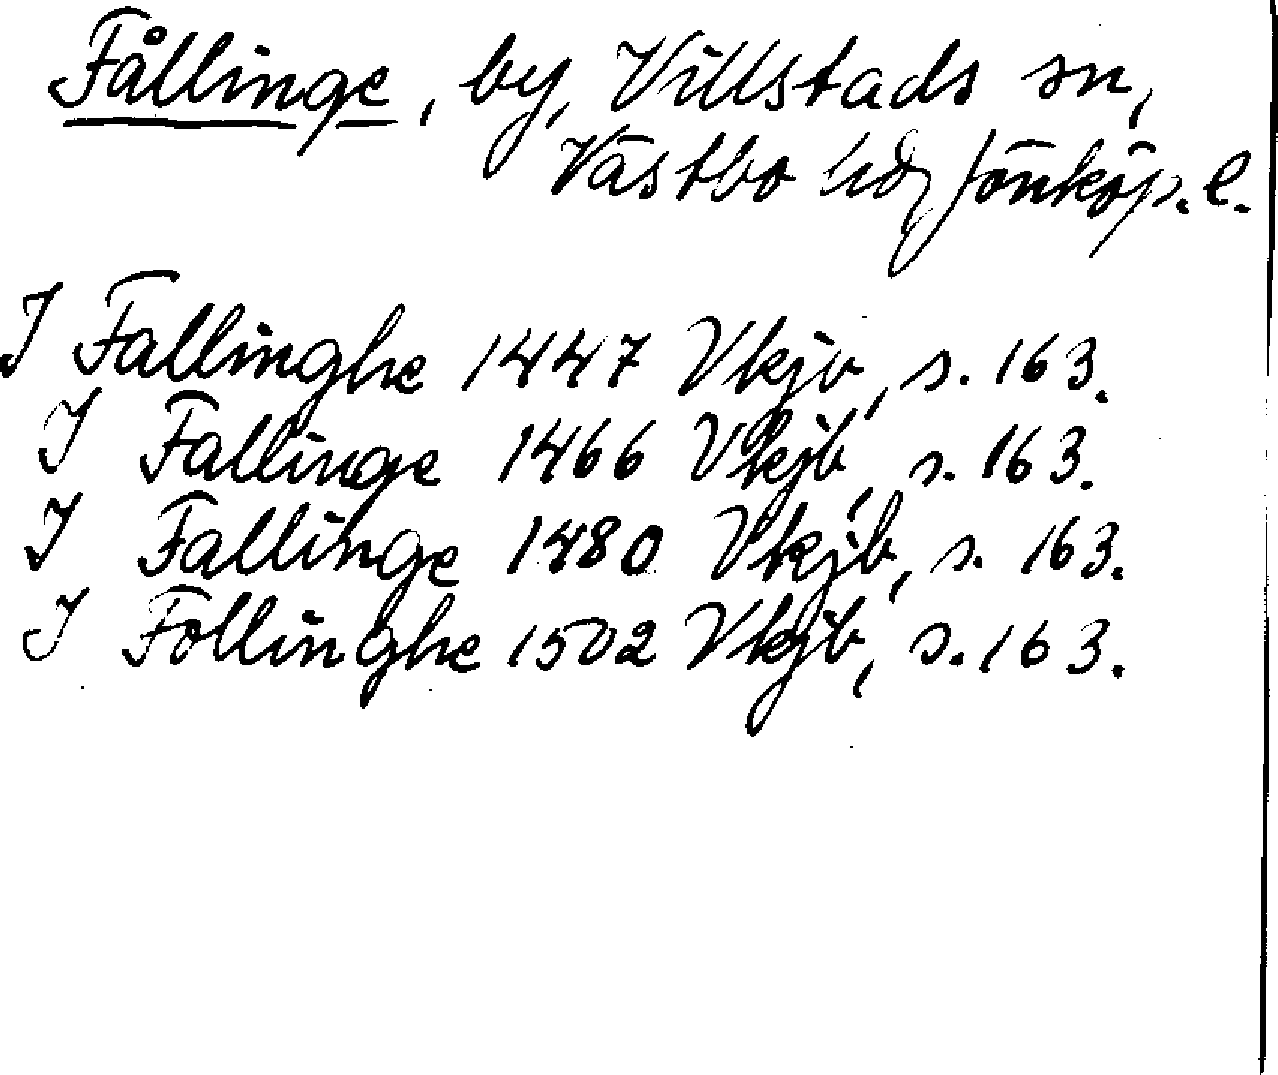 Fållinge, by, Villstads sn,
Västbo hd, Jönköp. l.
I Fallinghe 1447 Vkjb, s. 163.
I Fallinge 1466 Vkjb, s. 163.
I Fallinge 1480 Vkjb, s. 163.
I Follinghe 1502 Vkjb, s. 163.